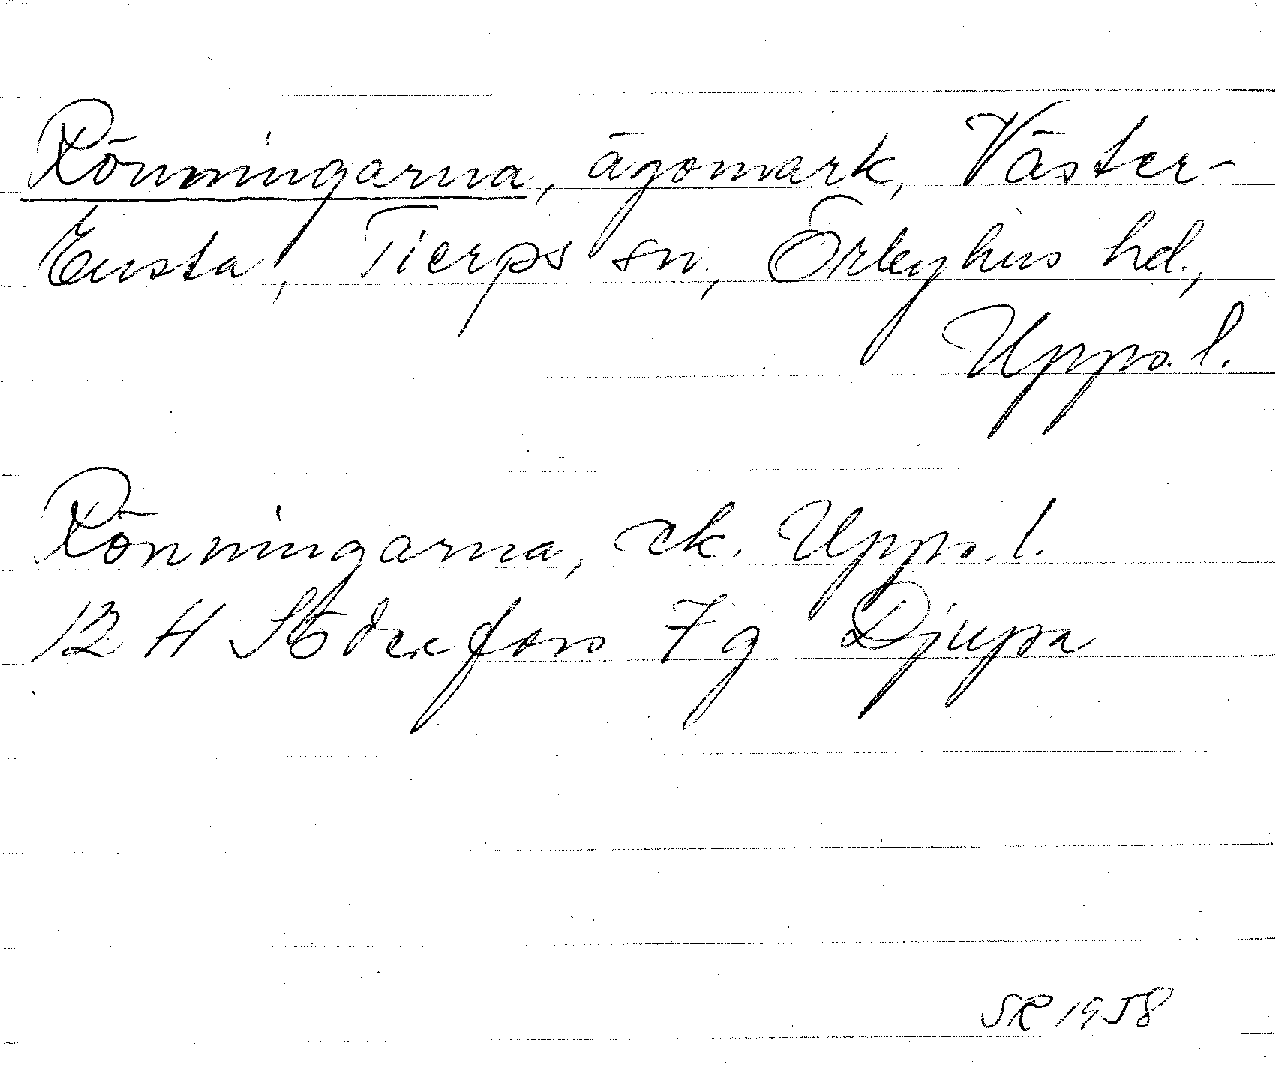 Rönningarna, ägomark, Väster-
Ensta, Tierps sn, Örbyhus hd.,
Upps. l.
Rönningarna, ek. Upps. l.
12 H Söderfors 7 g Djupa
SR 1958